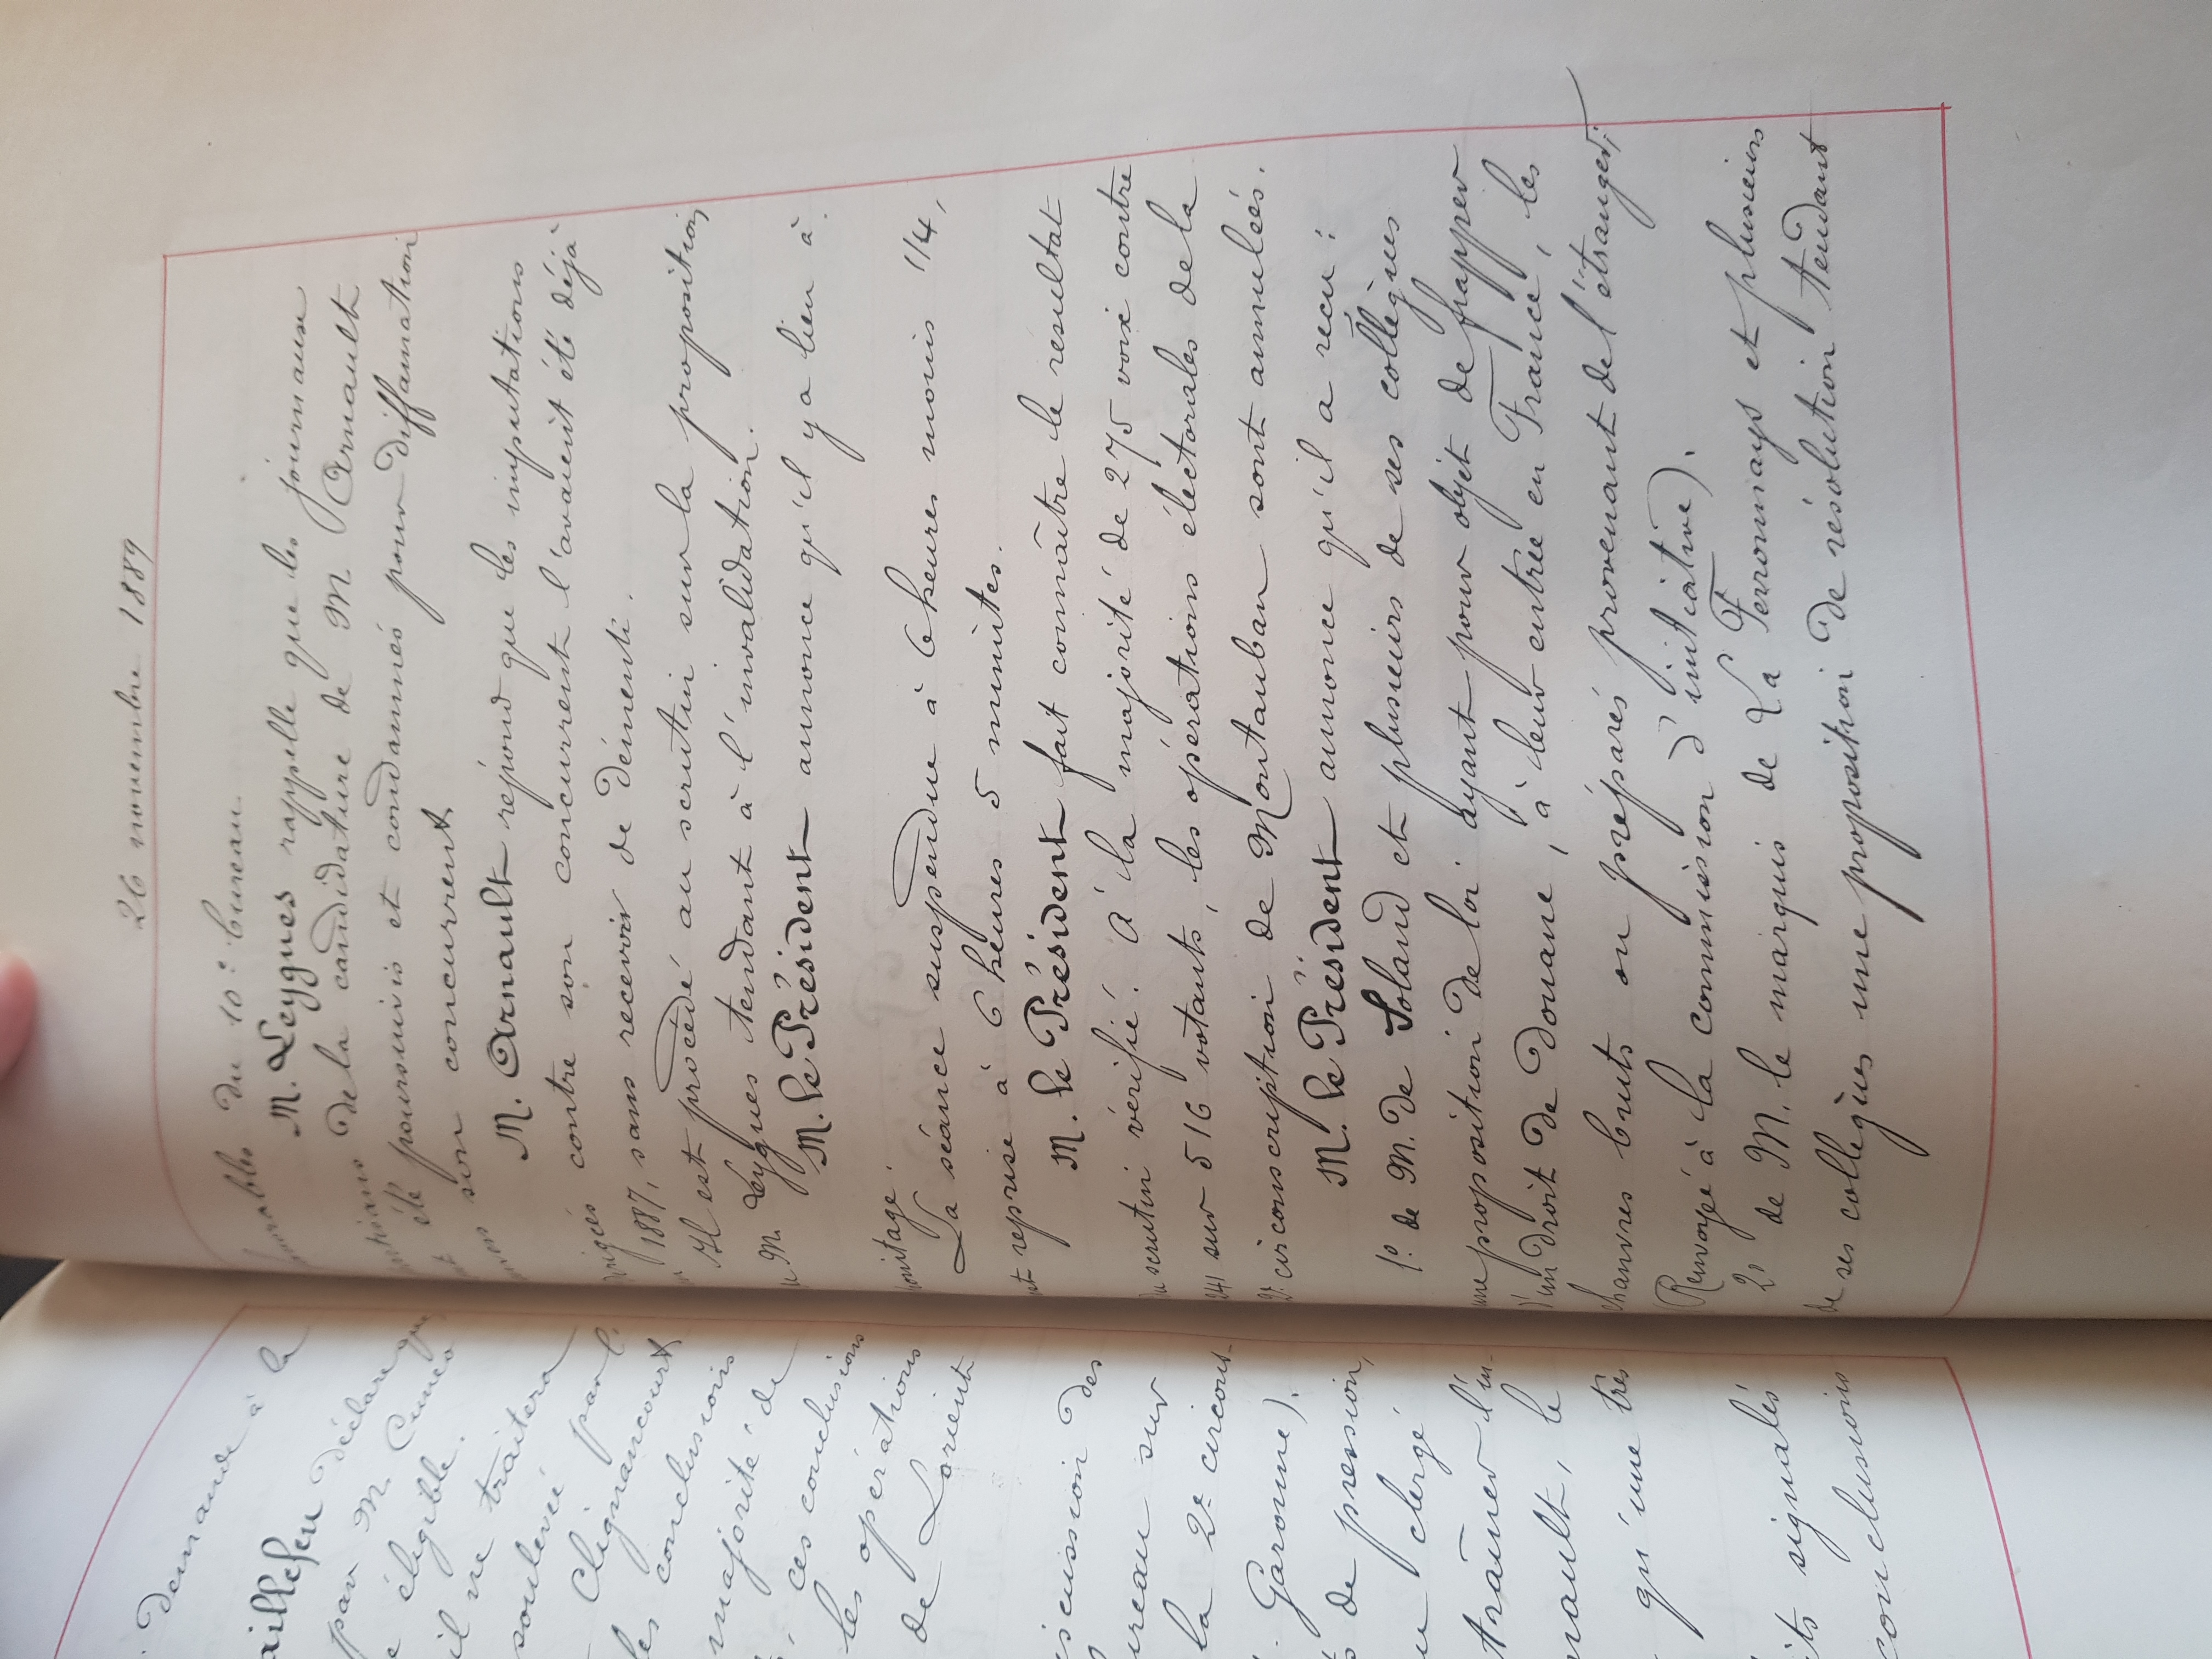 demande à la
aillefeu déclare que
par M. Cuneo
e éligible.
il ne traitera
soulevée par l'
Clignancourt
les conclusions
majorité de
ces conclusions
les opérations
de Lorient
iscussion des
ureau sur
la 2e circons-
Garonne).
s de pression,
u clergé
traîner l'in-
nault, le
qu'une très
its signalés
conclusions
26 novembre 1889
favorables du 10e bureau.
M. Leygues rappelle que les journaux
partisans de la candidature de M Arnault
ont été poursuivis et condamnés pour diffamation
envers son concurrent
M. Arnault répond que les imputations
dirigées contre son concurrent l'avaient été déjà
en 1887, sans recevoir de démenti.
Il est procédé au scrutin sur la proposition
de M. Leygues tendant à l'invalidation.
M. le Président annonce qu'il y a lieu à
pointage.
La séance suspendue à 6 heures moins 1/4,
est reprise à 6 heures 5 minutes.
M. le Président fait connaître le résultat
du scrutin vérifié. A la majorité de 275 voix contre
241 sur 516 votants, les opérations électorales de la
2e circonscription de Montauban sont annulées.
M. le Président annonce qu'il a reçu :
1º. de M. de Soland et plusieurs de ses collègues
une proposition de loi ayant pour objet de frapper
d'un droit de douane, à leur entrée en France, les
chanvres bruts ou préparés provenant de l'étranger;
(Renvoyée à la commission d'initiative).
2º de M. le marquis de La Ferronnays et plusieurs
de ses collègues une proposition de résolution tendant